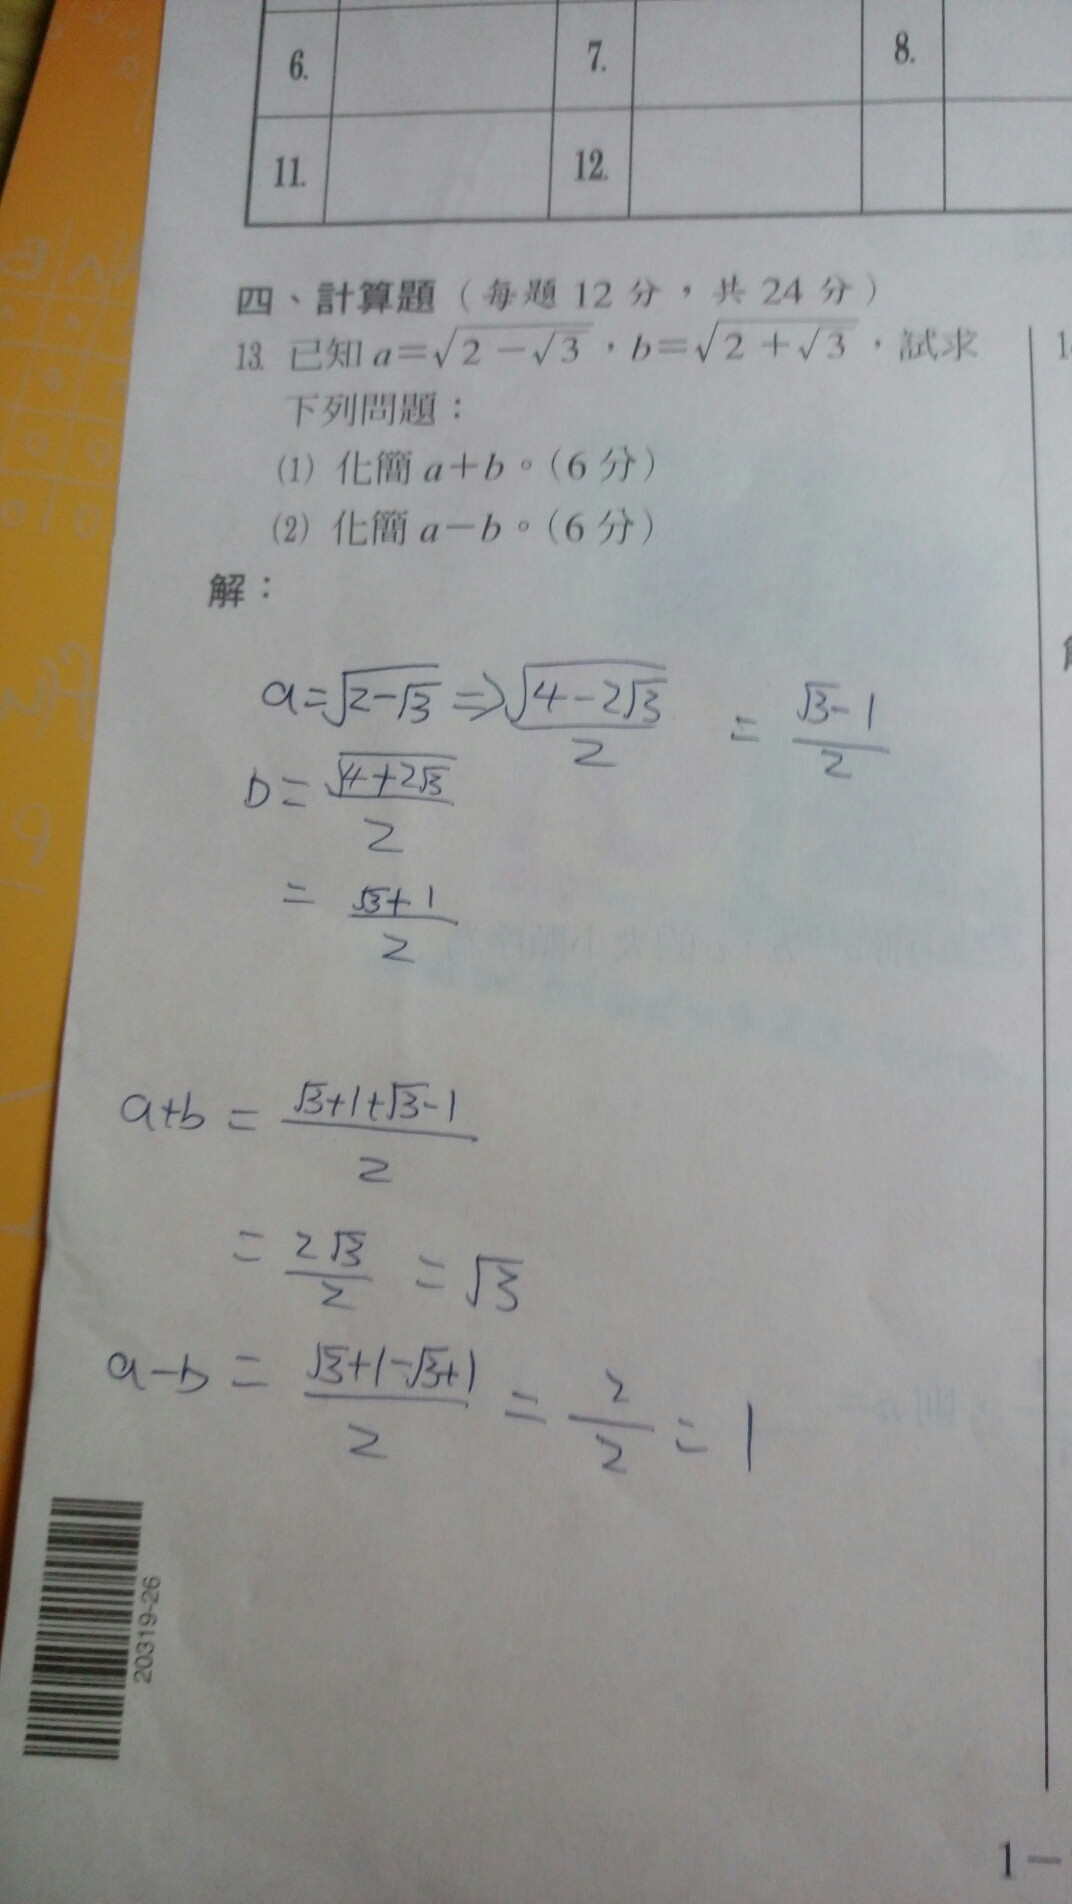 6. 7. 8.
11. 12.
四、計算題（每題 12 分，共 24 分）
13. 已知 a=√(2-√3)，b=√(2+√3)，試求
下列問題：
(1) 化簡 a+b。(6 分)
(2) 化簡 a-b。(6 分)
解：
a=√(2-√3) ⇒ √(4-2√3)/2 = (√3-1)/2
b= √(4+2√3)/2
= (√3+1)/2
a+b = (√3+1+√3-1)/2
= 2√3/2 = √3
a-b = (√3+1-√3+1)/2 = 2/2 = 1
20319-26
1－